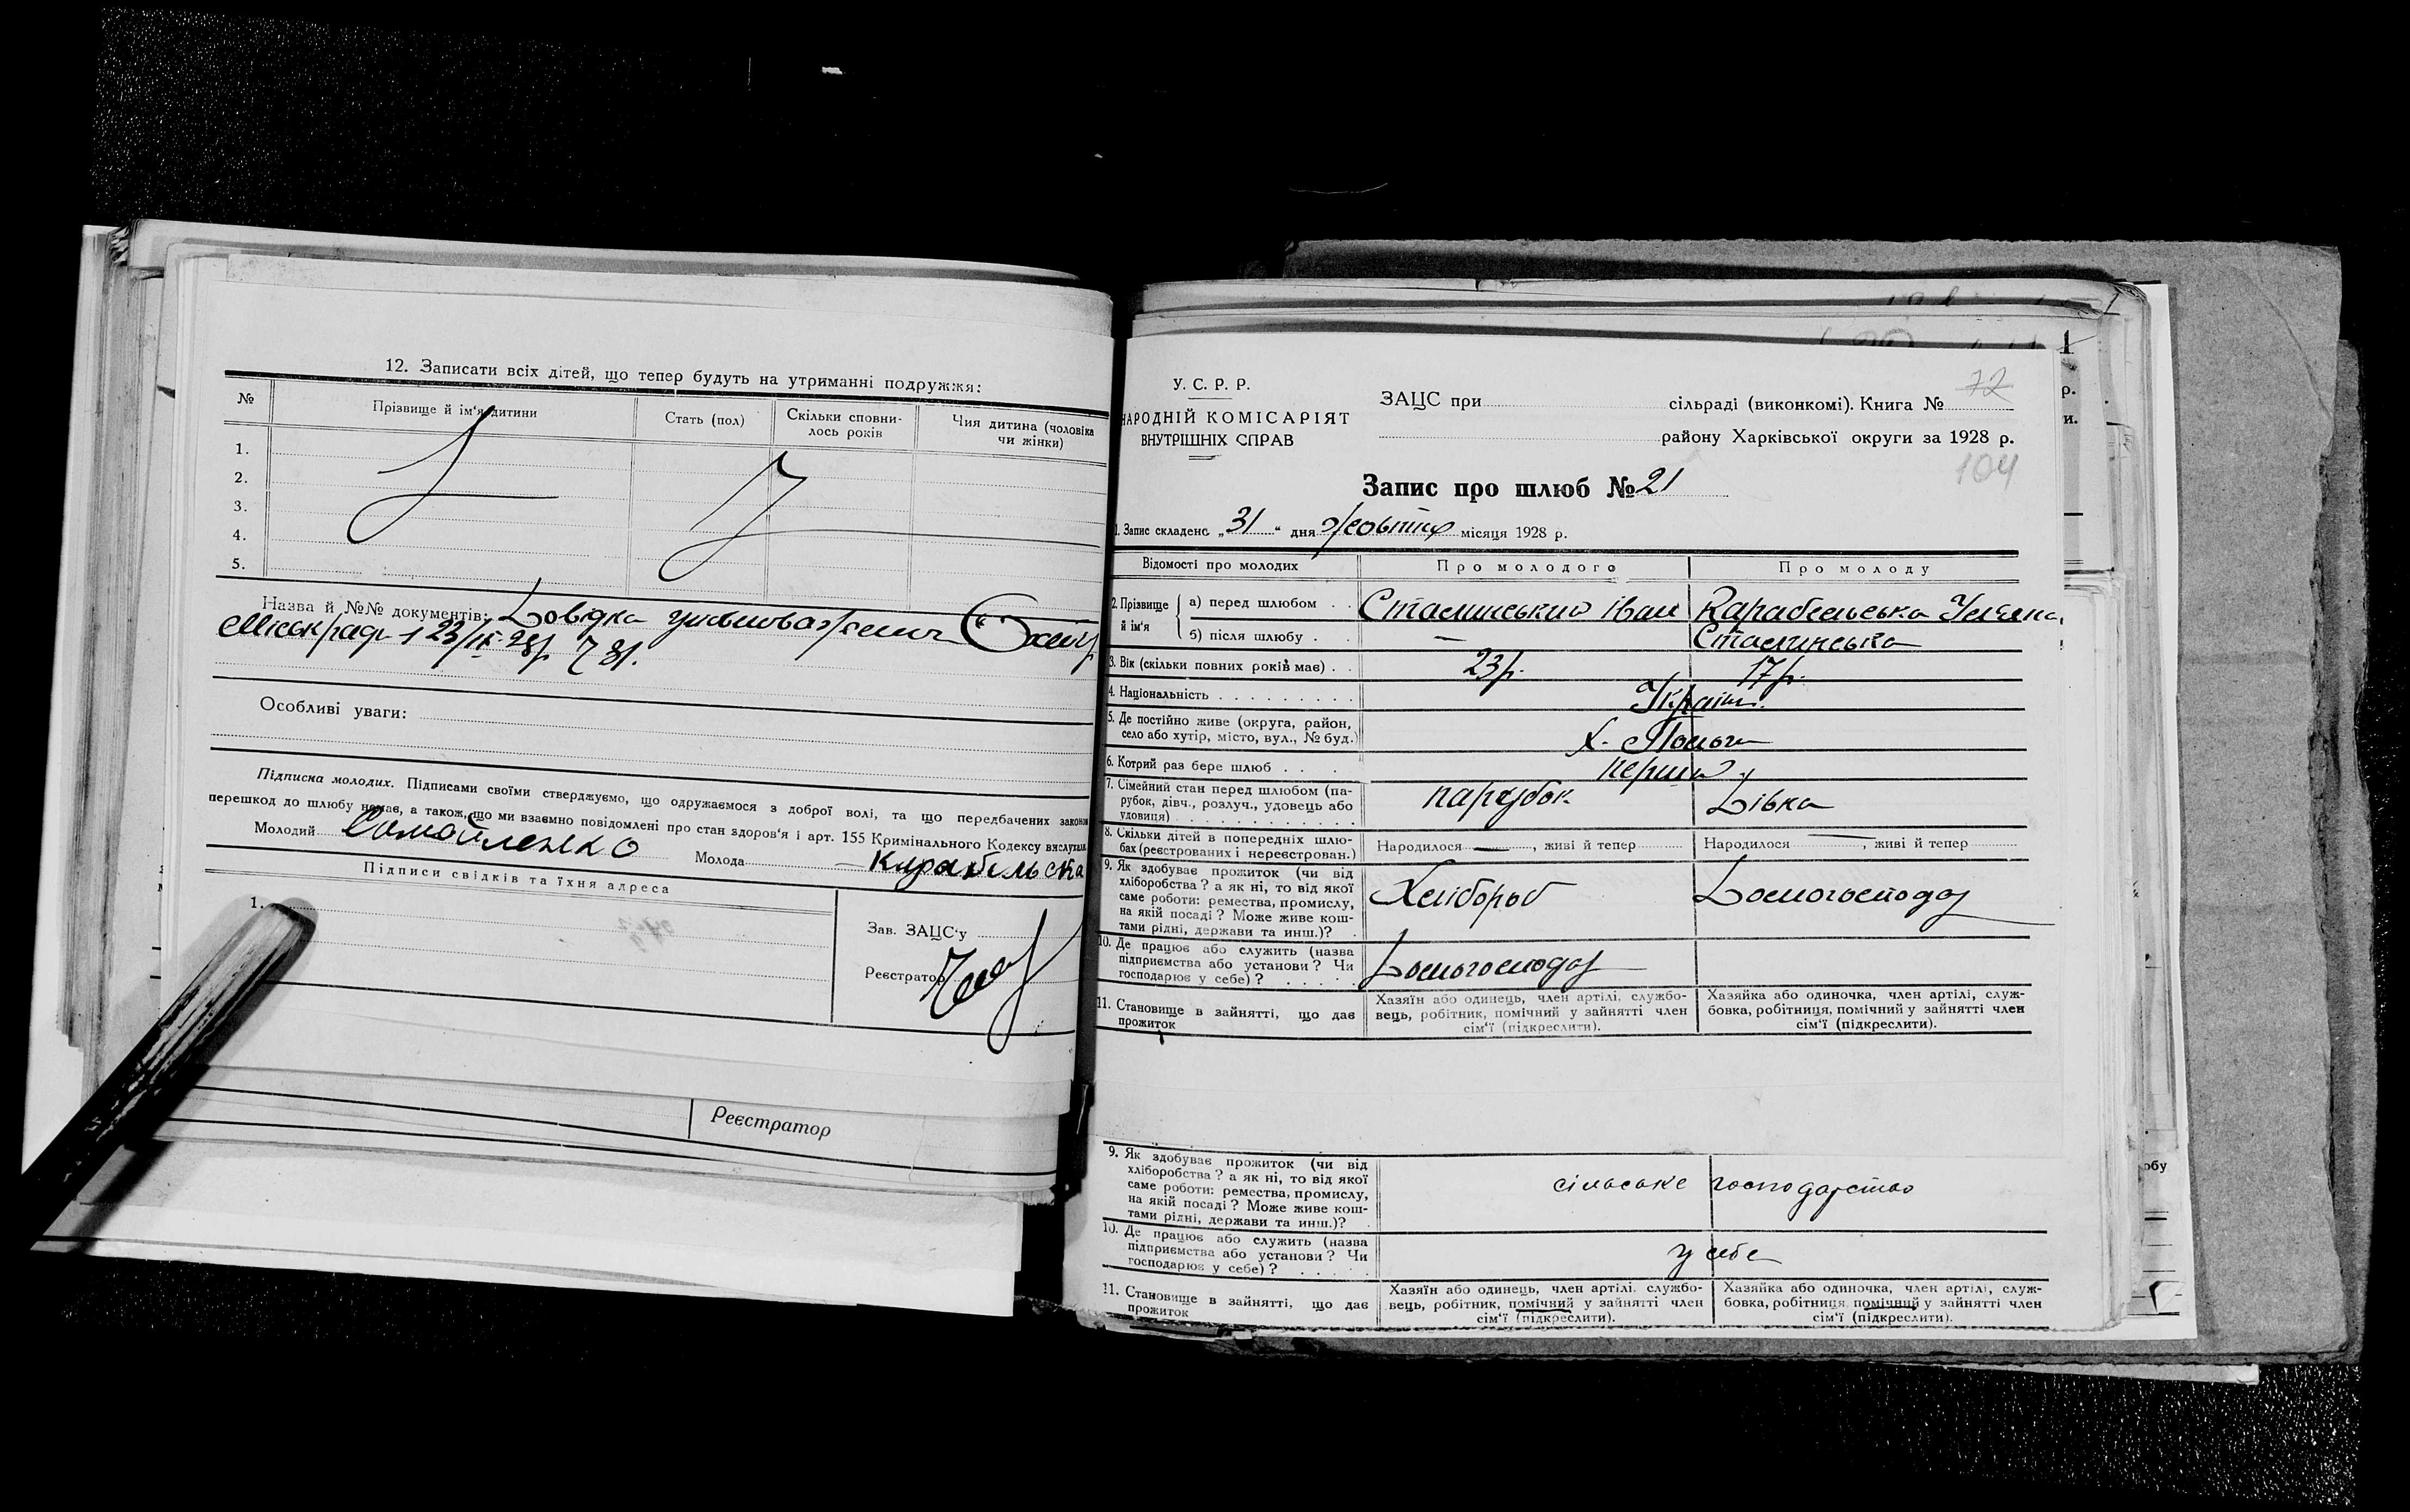 12. Записати всіх дітей, що тепер будуть на утриманні подружжя:
№ Прізвище й ім'я дитини Стать (пол) Скільки сповни- лось років Чия дитина (чоловіка чи жінки)
1.
2.
3.
4.
5.
Назва й №№ документів: Довідка
23/IX 28р
Особливі уваги:
Підписка молодих. Підписами своїми стверджуємо, що одружаємося з доброї волі, та що передбачених законом
перешкод до шлюбу немає, а також, що ми взаємно повідомлені про стан здоров'я і арт. 155 Кримінального Кодексу вислухали
Молодий Самойленко Молода Карабельська
Підписи свідків та їхня адреса
1.
Зав. ЗАЦС'у
Реєстратор
Реєстратор
У. С. Р. Р.
НАРОДНІЙ КОМІСАРІЯТ
ВНУТРІШНІХ СПРАВ
ЗАЦС при сільраді (виконкомі). Книга № 72
району Харківської округи за 1928 р.
104
Запис про шлюб № 21
1. Запис складено „31“ дня Жовтня місяця 1928 р.
Відомості про молодих Про молодого Про молоду
2. Прізвище й ім'я а) перед шлюбом . . Іван Карабельська Уляна
б) після шлюбу . . —
3. Вік (скільки повних років має) . . 23р. 17р.
4. Національність . . . . . . . . . Україн.
5. Де постійно живе (округа, район,
село або хутір, місто, вул., № буд.) Х.
6. Котрий раз бере шлюб . . . перший
7. Сімейний стан перед шлюбом (па-
рубок, дівч., розлуч., удовець або
удовиця) . . . . . . . . . . . . парубок. Дівка
8. Скільки дітей в попередніх шлю-
бах (реєстрованих і нереєстрован.) Народилося —, живі й тепер Народилося —, живі й тепер
9. Як здобуває прожиток (чи від
хліборобства? а як ні, то від якої
саме роботи: ремества, промислу,
на якій посаді? Може живе кош-
тами рідні, держави та инш.)? Хлібороб Домогосподар
10. Де працює або служить (назва
підприємства або установи? Чи
господарює у себе)? . . . . . Домогосподар
11. Становище в зайнятті, що дає
прожиток
Хазяїн або одинець, член артілі, службо-
вець, робітник, помічний у зайнятті член
сім'ї (підкреслити).
Хазяйка або одиночка, член артілі, служ-
бовка, робітниця, помічний у зайнятті член
сім'ї (підкреслити).
9. Як здобуває прожиток (чи від
хліборобства? а як ні, то від якої
саме роботи: ремества, промислу,
на якій посаді? Може живе кош-
тами рідні, держави та инш.)? сільське господарство
10. Де працює або служить (назва
підприємства або установи? Чи
господарює у себе)? . . . . . у себе
11. Становище в зайнятті, що дає
прожиток
Хазяїн або одинець, член артілі, службо-
вець, робітник, помічний у зайнятті член
сім'ї (підкреслити).
Хазяйка або одиночка, член артілі, служ-
бовка, робітниця, помічний у зайнятті член
сім'ї (підкреслити).
1
р.
и.
обу